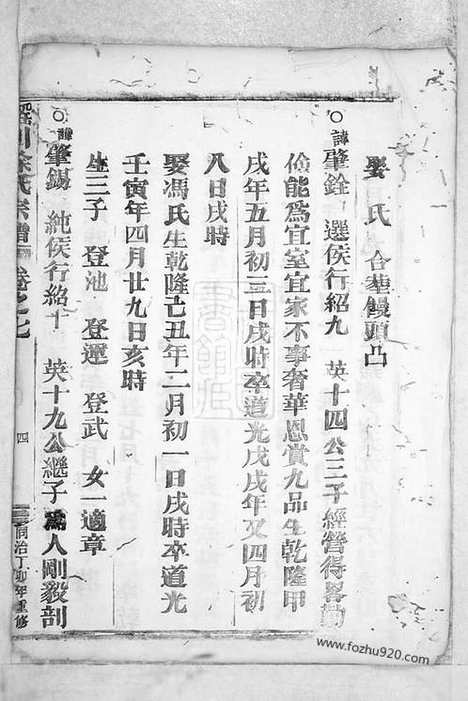 娶氏 合葬饅頭凸
○諱肇銓 選侯行紹九 英十四公三子經營得畧勤
儉能爲宜室宜家不事奢華恩賞九品生乾隆甲
戌年五月初三日戌時卒道光戊戌年又四月初
八日戌時
娶馮氏生乾隆己丑年二月初一日戌時卒道光
壬寅年四月廿九日亥時
生三子 登池 登運 登武 女一適章
○諱肇錫 純侯行紹十 英十九公繼子爲人剛毅剖
川余氏宗譜 卷之七 四 同治丁卯年重修
www.fozhu920.com